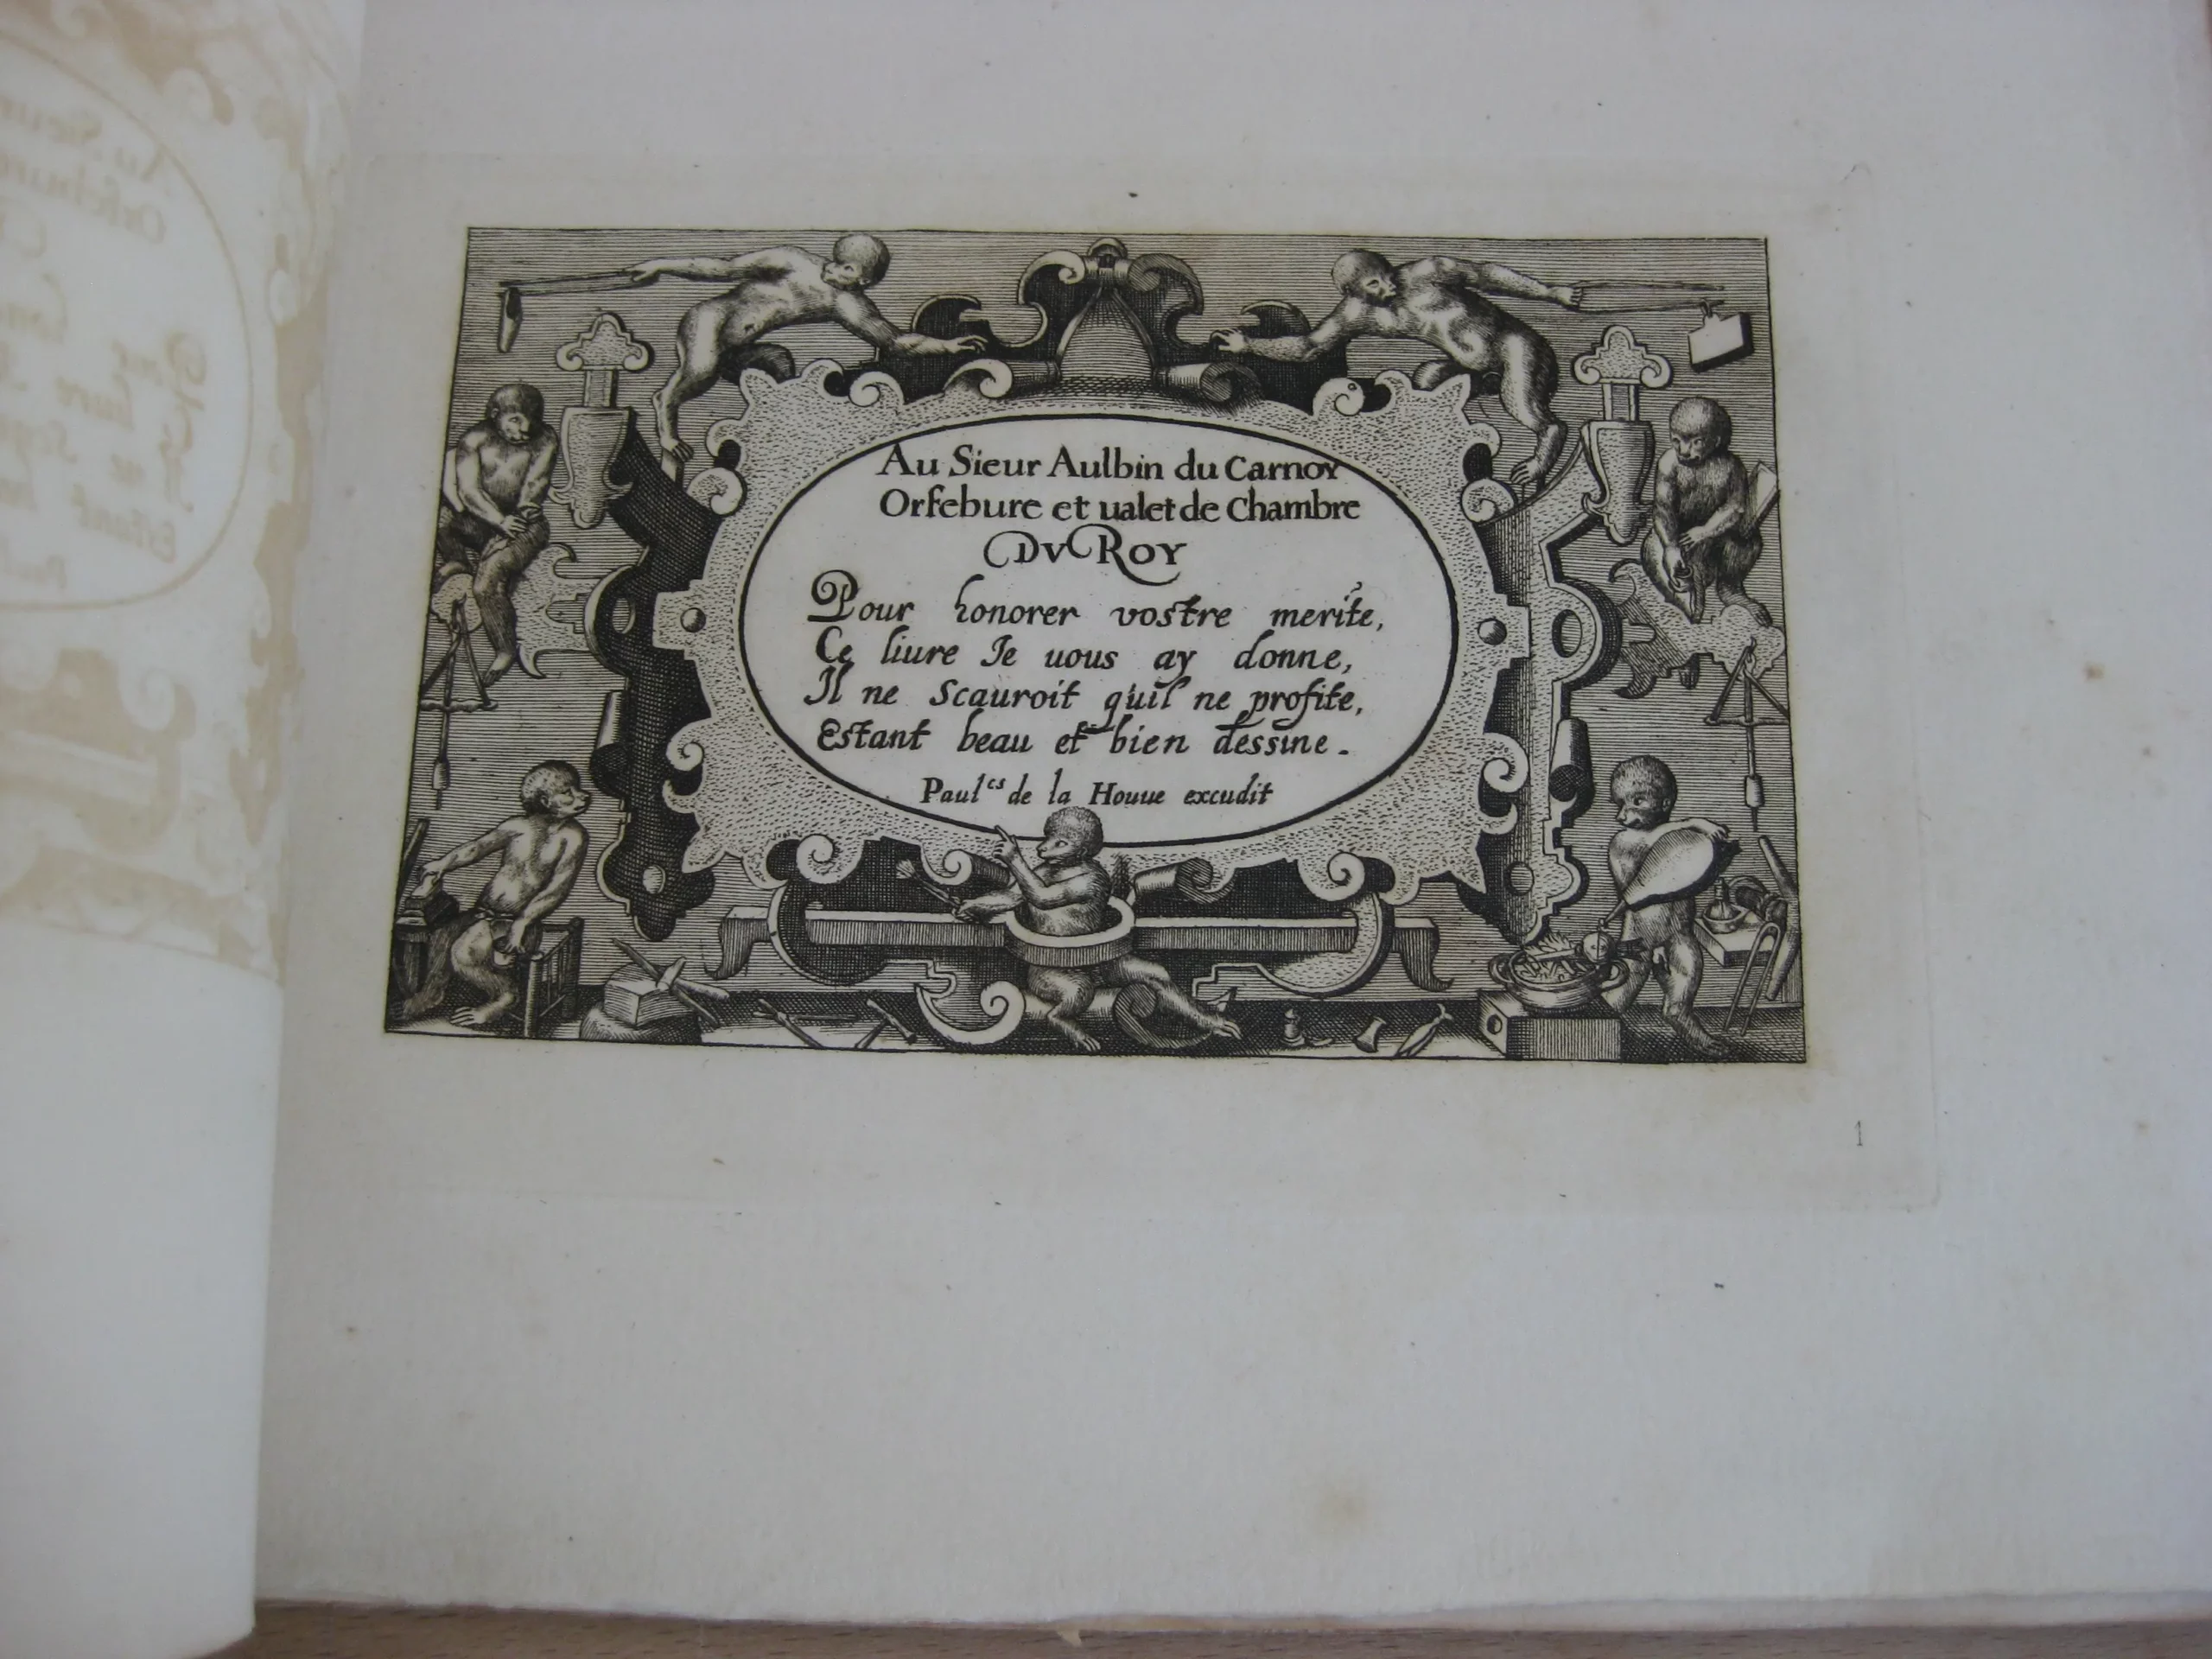 Au Sieur Aulbin du Carnoy
Orfebure et ualet de Chambre
DV ROY
Pour honorer vostre merite,
Ce liure Je uous ay donne,
Il ne Scauroit quil ne profite,
Estant beau et bien dessine.
Paul^cs de la Houue excudit
1